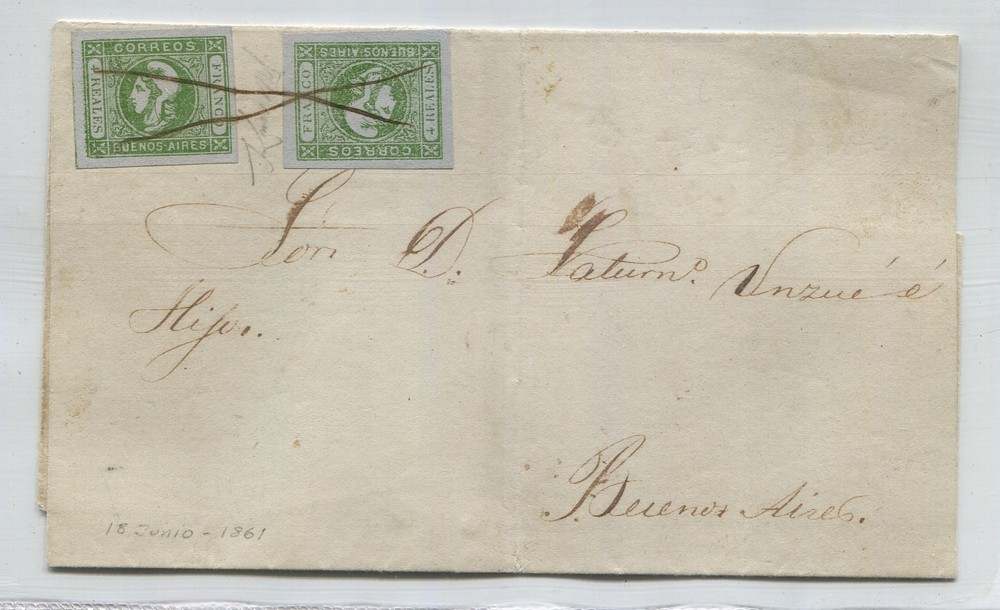 CORREOS
4 REALES
FRANCO
BUENOS·AIRES
BUENOS·AIRES
FRANCO
4 REALES
CORREOS
Sor. D. Saturno. Unzué é
Hijos.
Buenos Aires.
18 JUNIO - 1861